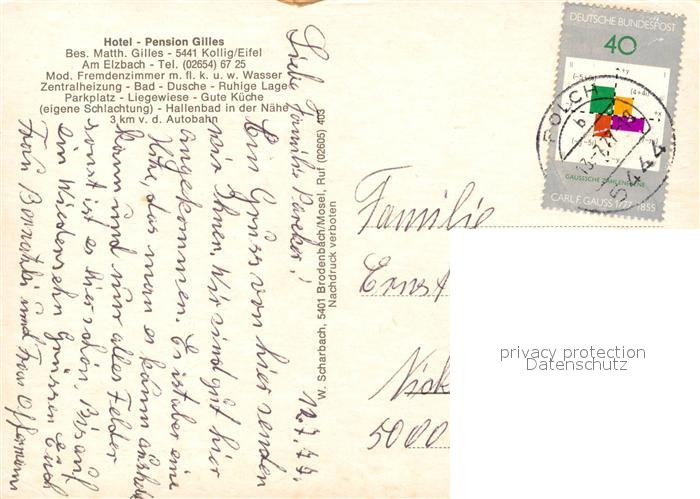 Hotel - Pension Gilles
Bes. Matth. Gilles - 5441 Kollig/Eifel
Am Elzbach - Tel. (02654) 67 25
Mod. Fremdenzimmer m. fl. k. u. w. Wasser
Zentralheizung - Bad - Dusche - Ruhige Lage
Parkplatz - Liegewiese - Gute Küche
(eigene Schlachtung) - Hallenbad in der Nähe
3 km v. d. Autobahn
W. Scharbach, 5401 Brodenbach/Mosel, Ruf (02605) 403
Nachdruck verboten
12.7.77.
Liebe Familie
Ein Gruss von hier senden
wir Ihnen. Wir sind gut hier
angekommen. Es ist aber eine
Hitze, das man es kaum aushalten
kann und nur alles Felder
sonst ist es hier schön. Bis auf
ein Wiedersehn Grüssen Euch
Frau und Frau Offermann
DEUTSCHE BUNDESPOST
40
GAUSSSCHE ZAHLENEBENE
CARL F. GAUSS 1777-1855
POLCH
Familie
Ernst
5000
privacy protection
Datenschutz